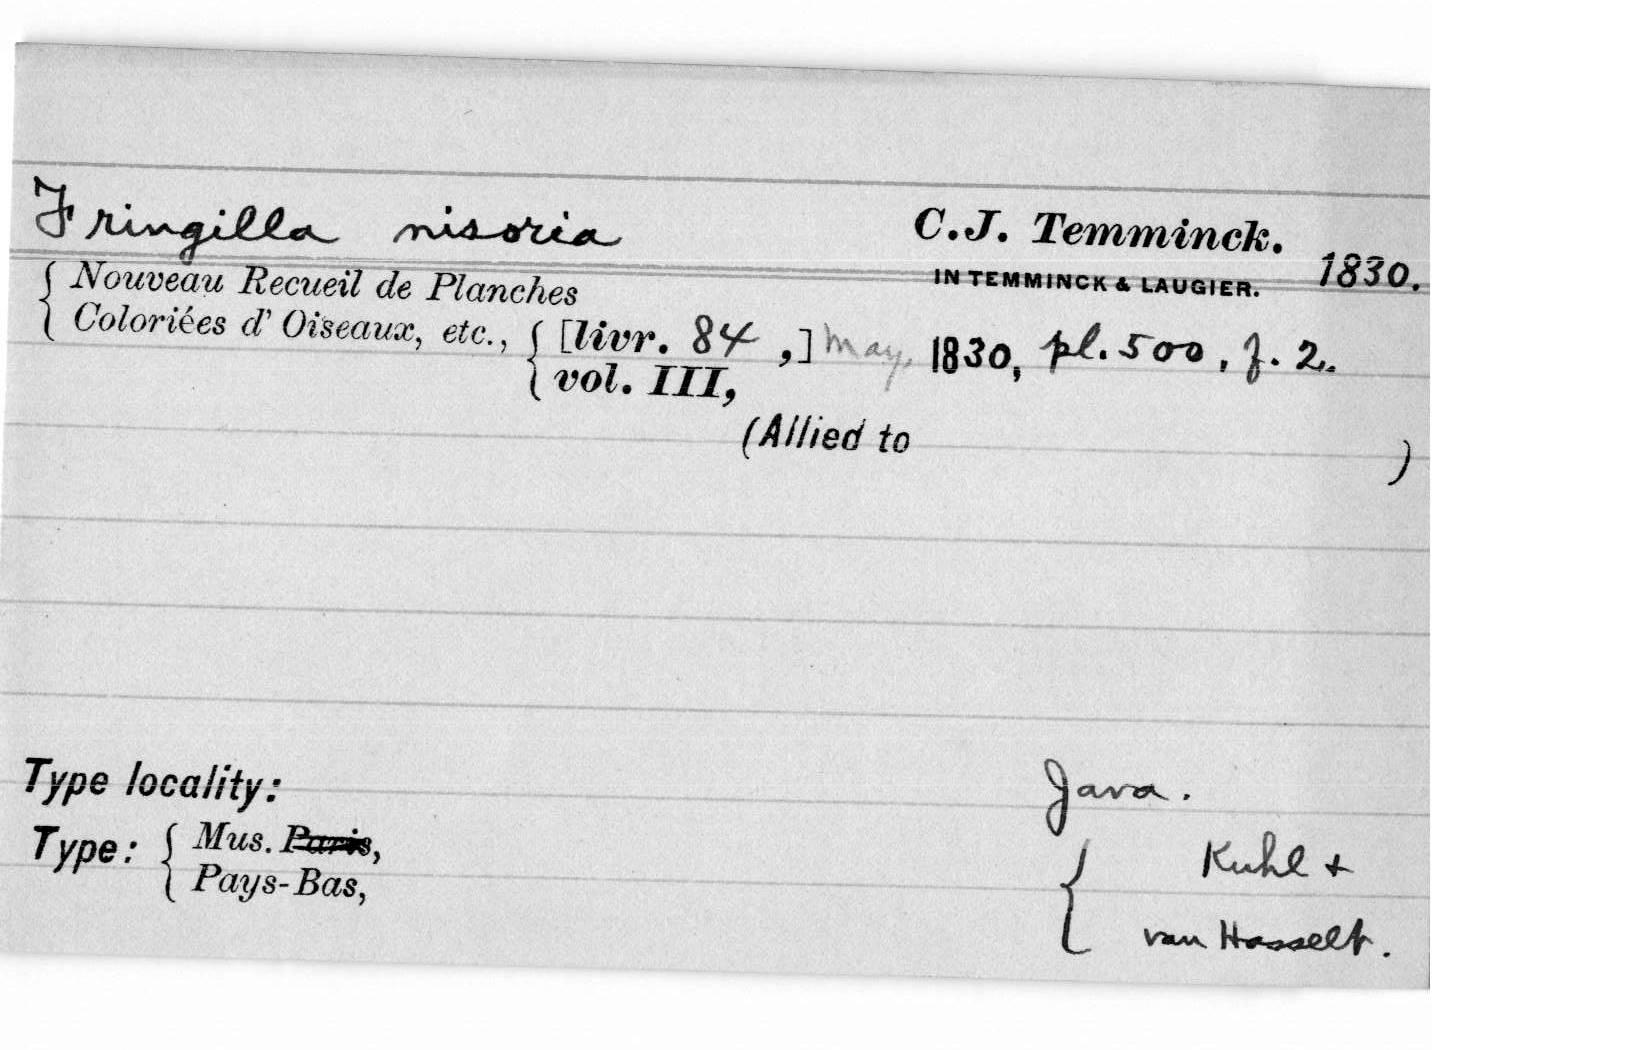 Fringilla nisoria C.J. Temminck.
IN TEMMINCK & LAUGIER. 1830.
Nouveau Recueil de Planches
Coloriées d' Oiseaux, etc., [livr. 84 ,] May, 1830, pl. 500, f. 2.
vol. III,
(Allied to )
Type locality: Java.
Type: Mus. Paris, Kuhl +
Pays-Bas, van Hasselt.